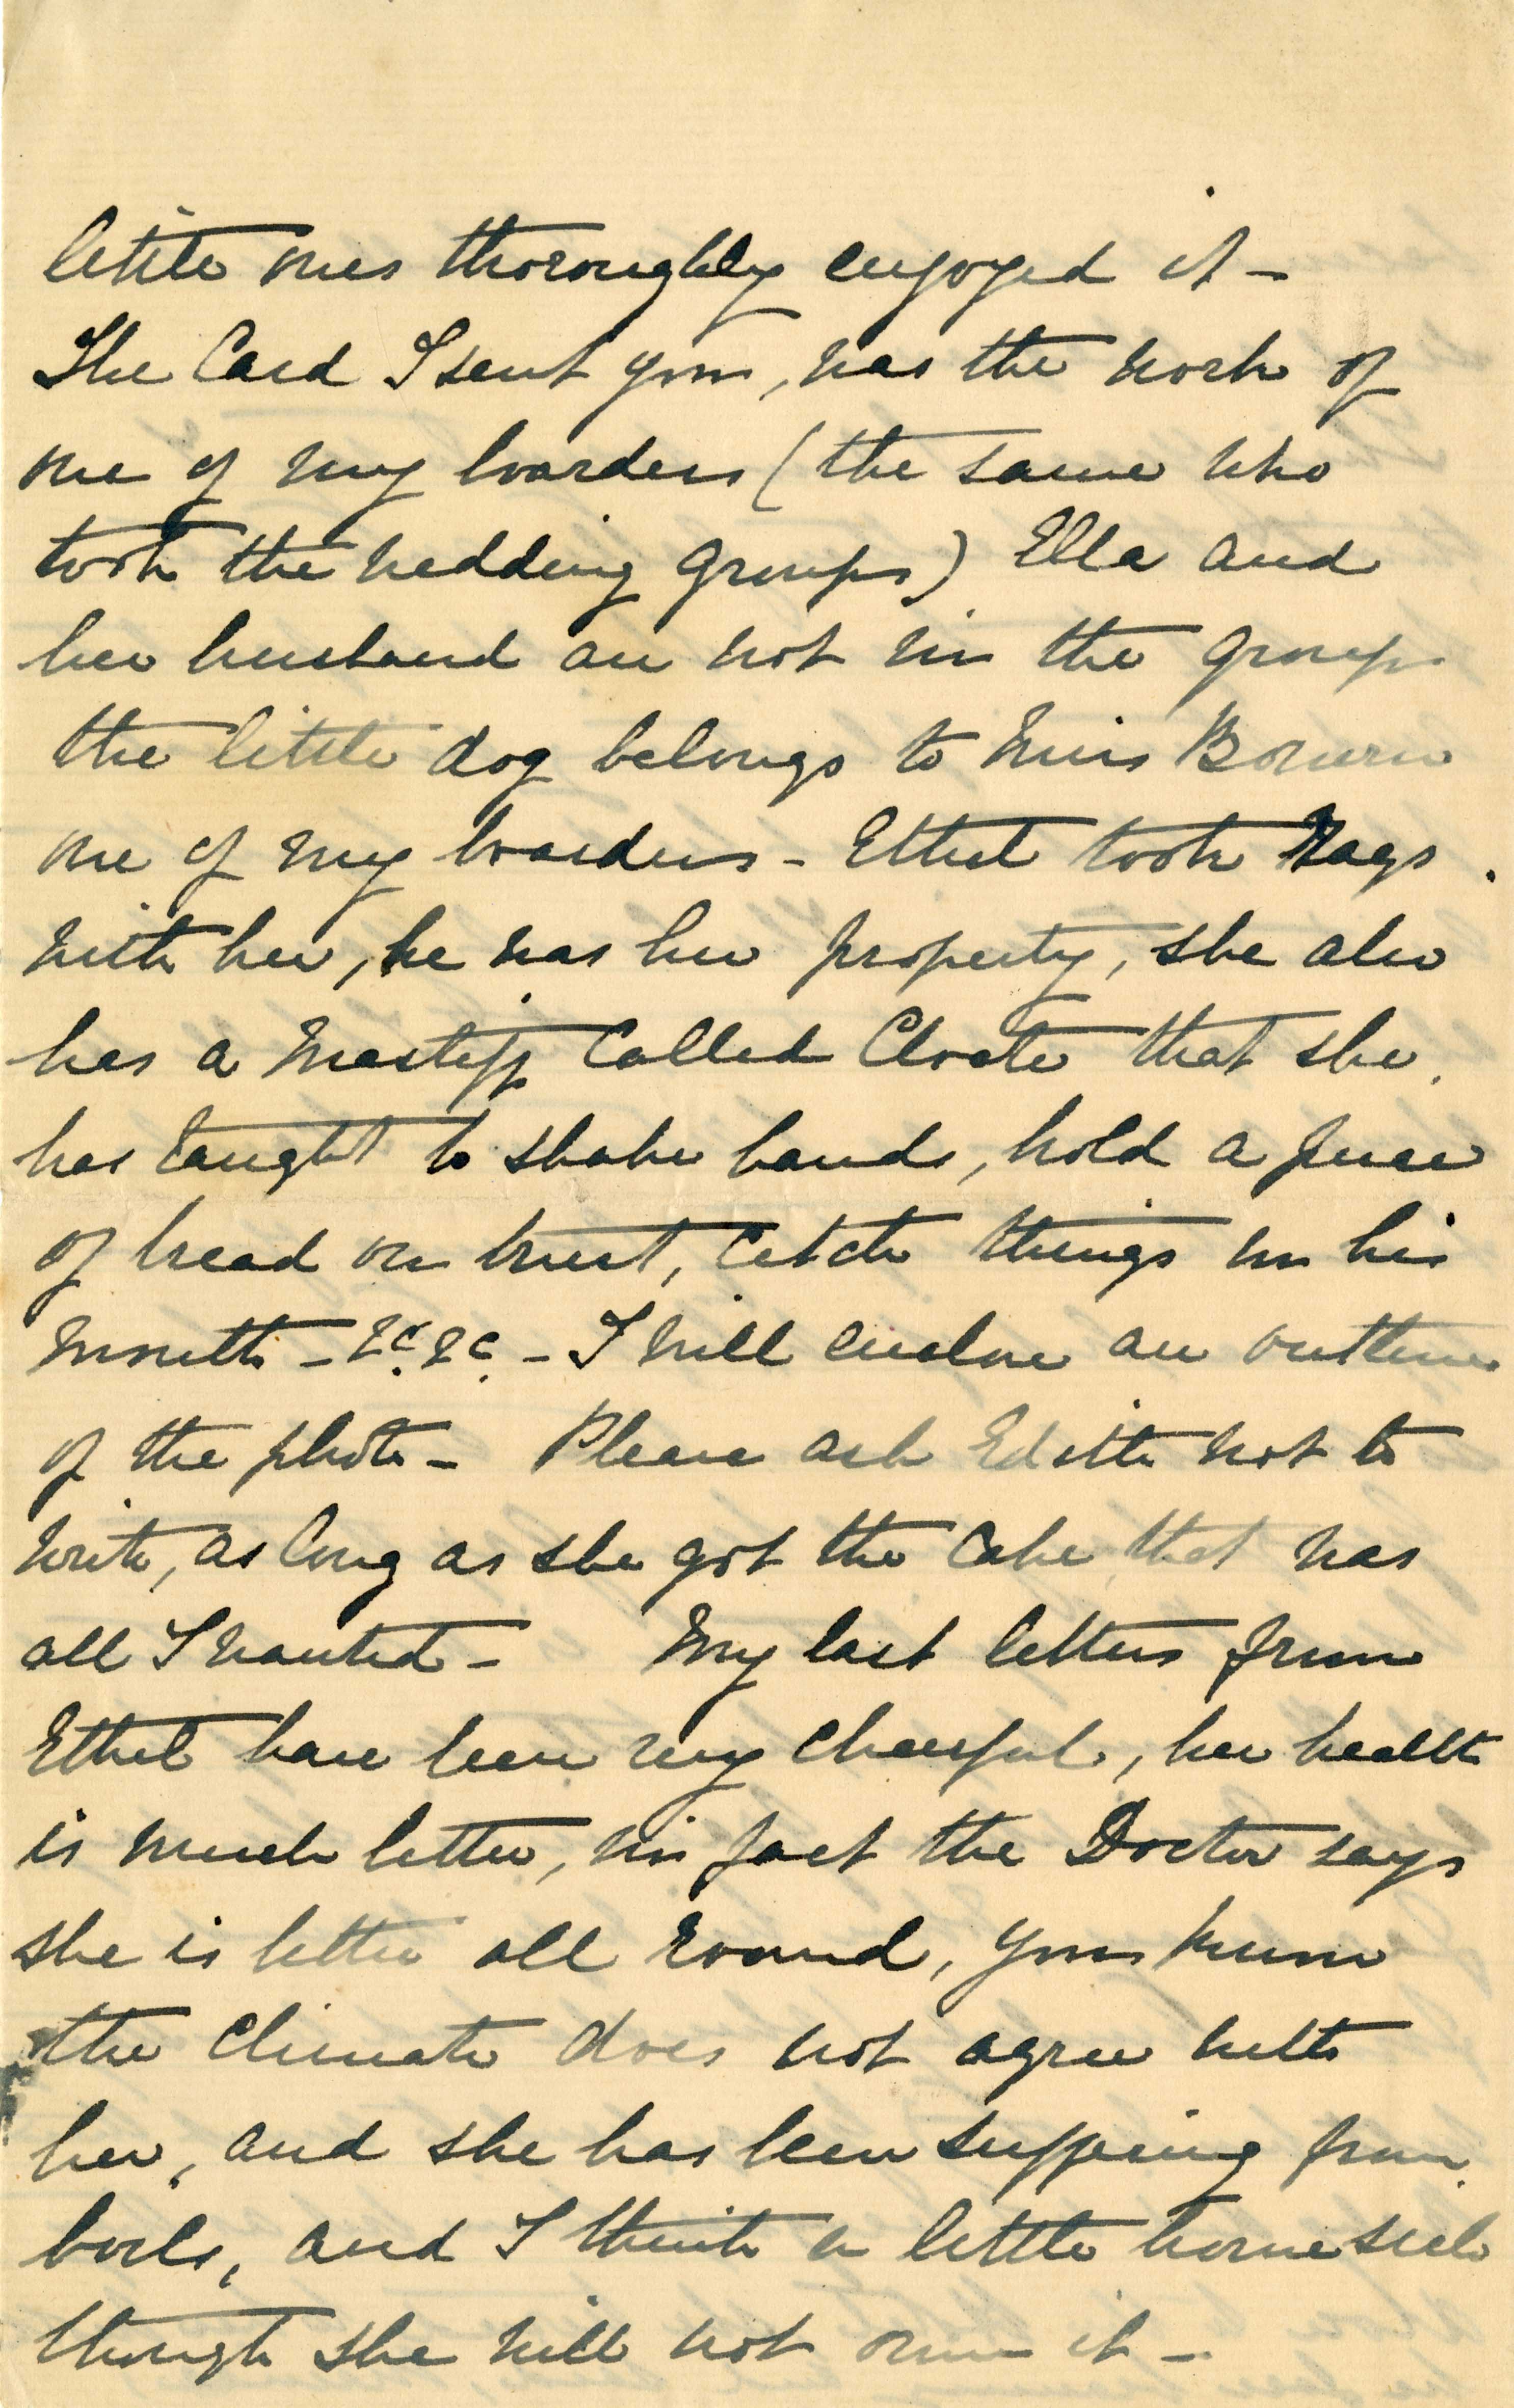 little ones thoroughly enjoyed it -
The Card I sent you, was the work of
one of my boarders (the same who
took the wedding groups) Ella and
her husband are not in the group
the little dog belongs to Miss
one of my boarders - Ethel took Rags
with her, he was her property, she also
has a Mastiff called Cloete that she
has taught to shake hands, hold a piece
of bread on trust, catch things in his
mouth - &c. &c. - I will enclose an outline
of the photo - Please ask Edith not to
write, as long as she got the Cake that was
all I wanted - My last letters from
Ethel have been very cheerful, her health
is much better, in fact the Doctor says
she is better all round, you know
the Climate does not agree with
her, and she has been suffering from
boils, and I think a little home sick
though she will not own it -